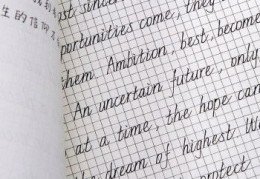 生的信仰
st since
portunities come, they
hem. Ambition, best, become
An uncertain future, only
at a time, the hope can
dream of highest
protect